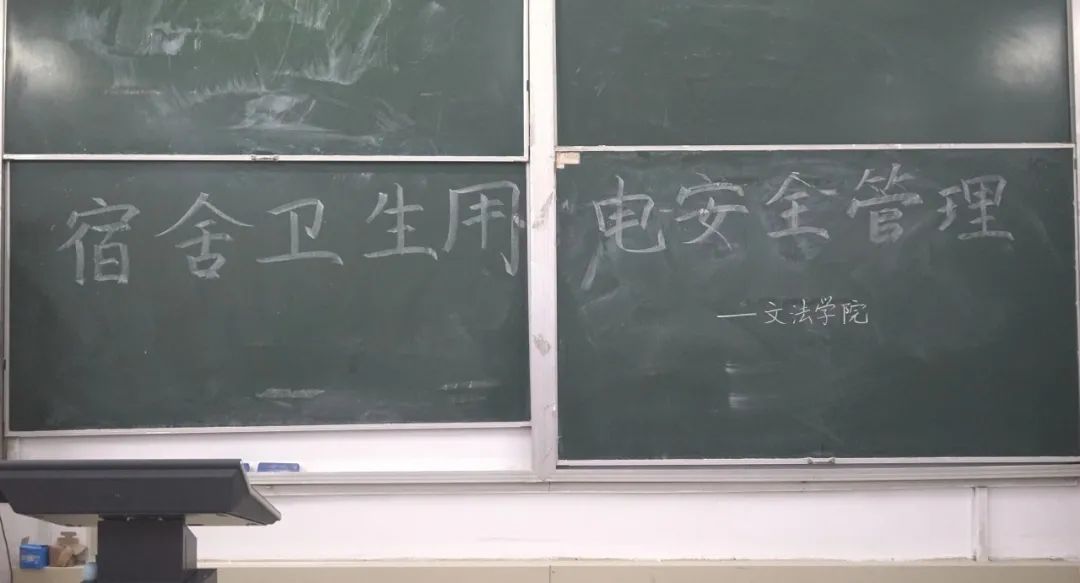 宿舍卫生用电安全管理
—文法学院